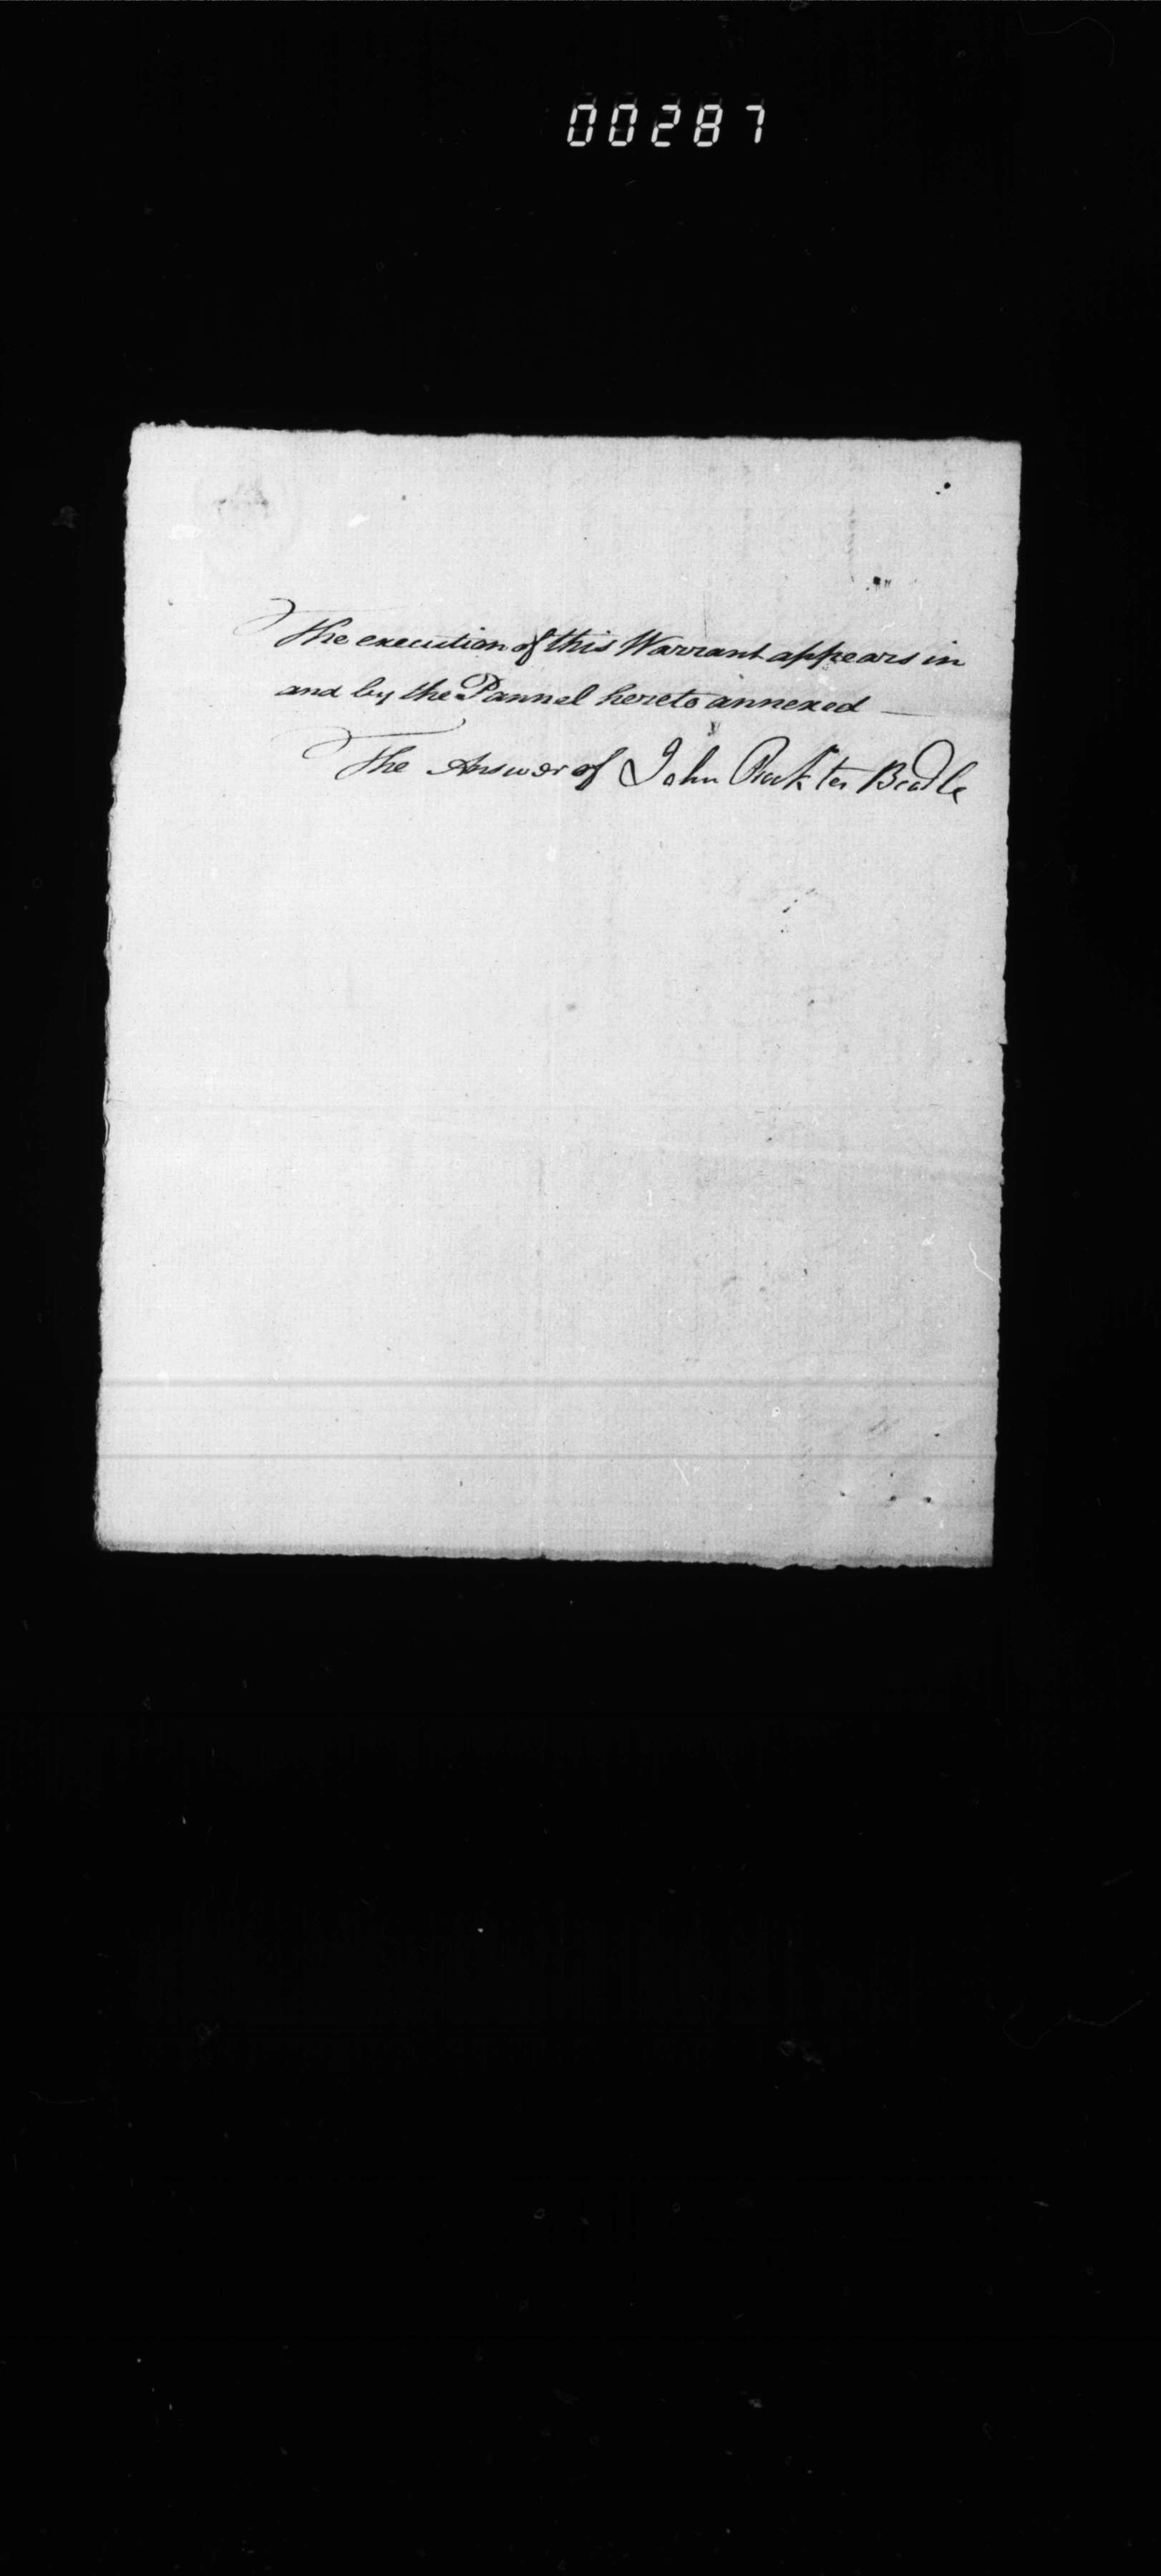 00287
The execution of this Warrant appears in
and by the Pannel hereto annexed —
The Answer of John Beadle